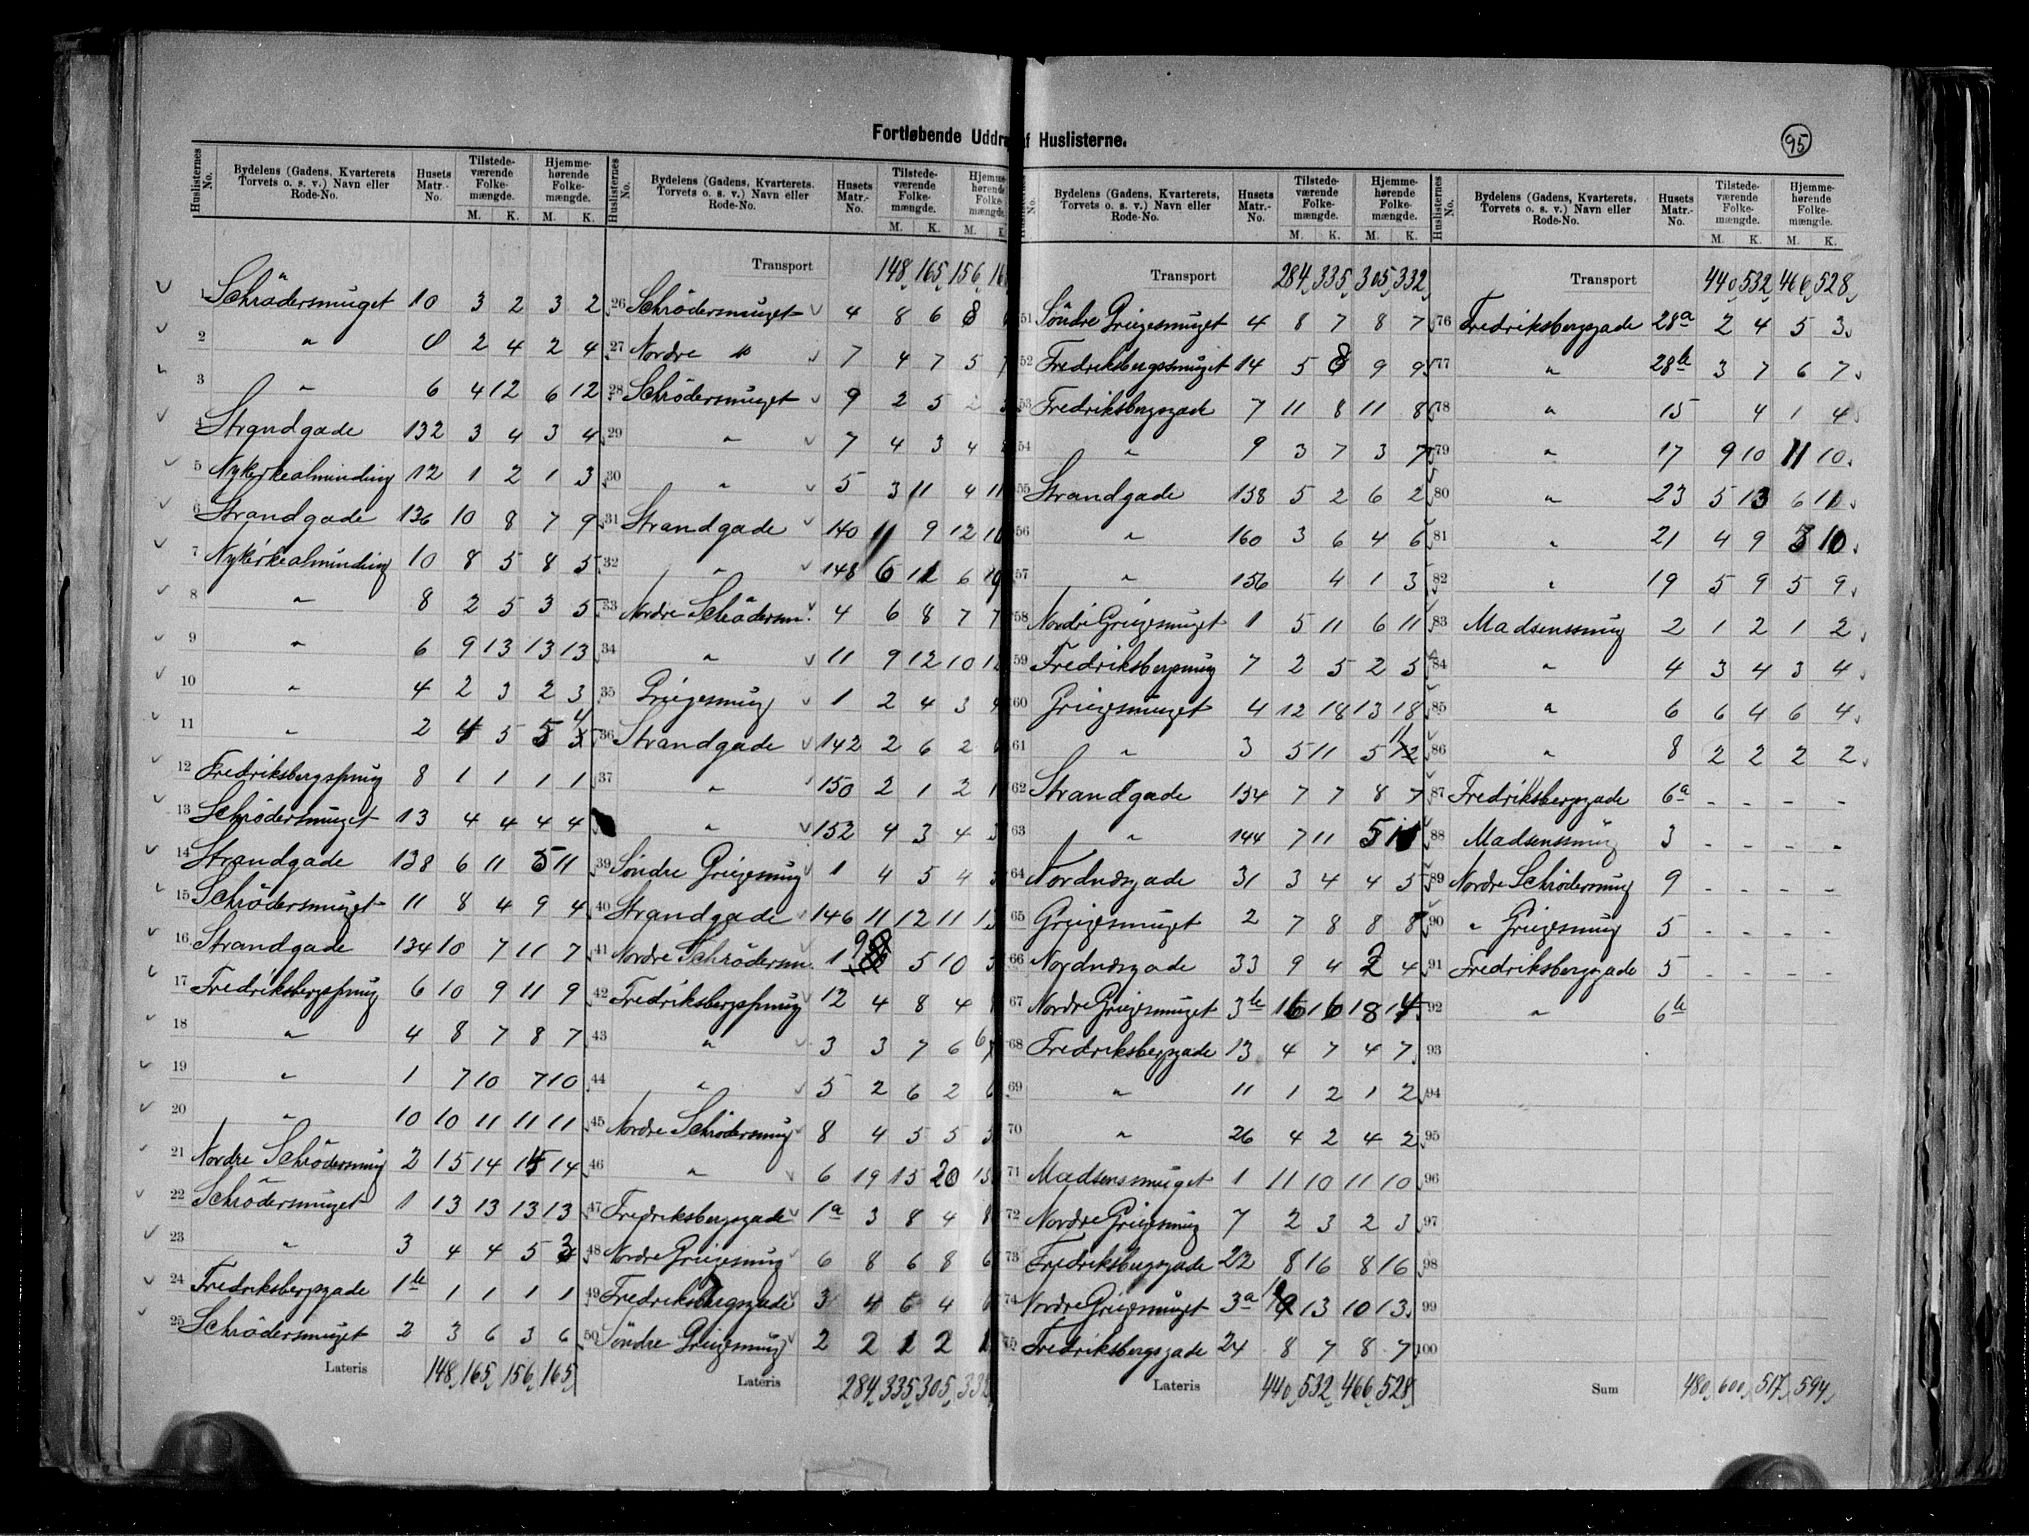 Fortløbende Uddrag af Huslisterne.
95
Huslisternes No. Bydelens (Gadens, Kvarterets Torvets o. s. v.) Navn eller Rode-No. Husets Matr.-No. Tilstede-værende Folke-mængde. M. K. Hjemme-hørende Folke-mængde. M. K.
1 Schrödersmuget 10 3 2 3 2
2 " 2 4 2 4
3 " 6 4 12 6 12
4 Strandgade 132 3 4 3 4
5 Nykirkealminding 12 1 2 1 3
6 Strandgade 136 10 8 7 9
7 Nykirkealminding 10 8 5 8 5
8 " 8 2 5 3 5
9 " 6 9 13 13 13
10 " 4 2 3 2 3
11 " 2 4 5 5 4
12 Fredriksbergsmug 8 1 1 1 1
13 Schrödersmuget 13 4 4 4 4
14 Strandgade 138 6 11 5 11
15 Schrödersmuget 11 8 4 9 4
16 Strandgade 134 10 7 11 7
17 Fredriksbergsmug 6 10 9 11 9
18 " 4 8 7 8 7
19 " 1 7 10 7 10
20 " 10 10 11 11 11
21 Nordre Schrödersmug 2 15 14 15 14
22 Schrödersmuget 1 13 13 13 13
23 " 3 4 4 5 3
24 Fredriksbergsgade 1b 1 1 1 1
25 Schrödersmuget 2 3 6 3 6
Lateris 148 165 156 165
Huslisternes No. Bydelens (Gadens, Kvarterets, Torvets o. s. v.) Navn eller Rode-No. Husets Matr.-No. Tilstede-værende Folke-mængde. M. K. Hjemme-hørende Folke-mængde. M. K
Transport 148 165 156 16
26 Schrödersmuget 4 8 6 8
27 Nordre " 7 4 7 5 7
28 Schrödersmuget 9 2 5 2
29 " 7 4 3 4
30 " 5 3 11 4 11
31 Strandgade 140 11 9 12 10
32 " 148 6 11 6 10
33 Nordre Schrödersm. 4 6 8 7 7
34 " 11 9 12 10 12
35 Griegesmug 1 2 4 3 4
36 Strandgade 142 2 6 2 6
37 " 150 2 1 2 1
" 152 4 3 4 3
39 Söndre Griegesmug 1 4 5 4
40 Strandgade 146 11 12 11 13
41 Nordre Schrödersm. 1 9 5 10
42 Fredriksbergsmug 12 4 8 4
43 " 3 3 7 6 6
44 " 5 2 6 2 6
45 Nordre Schrödersmug 8 4 5 5 5
46 " 6 19 15 20 15
47 Fredriksbergsgade 1a 3 8 4 8
48 Nordre Griegesmug 6 8 6 8 6
49 Fredriksbergsgade 3 4 6 4 6
50 Söndre Griegesmug 2 2 1 2 1
Lateris 284 335 305 332
No. Bydelens (Gadens, Kvarterets, Torvets o. s. v.) Navn eller Rode-No. Husets Matr.-No. Tilstede-værende Folke-mængde. M. K. Hjemme-hørende Folke-mængde. M. K.
Transport 284 335 305 332
51 Söndre Griegesmuget 4 8 7 8 7
52 Fredriksbergssmuget 14 5 8 9 9
53 Fredriksbergsgade 7 11 8 11 8
54 " 9 3 7 3 7
55 Strandgade 158 5 2 6 2
56 " 160 3 6 4 6
57 " 156 4 1 3
58 Nordre Griegesmuget 1 5 11 6 11
59 Fredriksbergsmug 7 2 5 2 5
60 Griegesmuget 4 12 18 13 18
61 " 3 5 11 5 11
62 Strandgade 154 7 7 8 7
63 " 144 7 11 5 11
64 Nordnæsgade 31 3 4 4 5
65 Griegesmuget 2 7 8 8 8
66 Nordnæsgade 33 9 4 2 4
67 Nordre Griegesmuget 3b 16 16 18 14
68 Fredriksbergsgade 13 4 7 4 7
69 " 11 1 2 1 2
70 " 26 4 2 4 2
71 Madsenssmuget 1 11 10 11 10
72 Nordre Griegesmug 7 2 3 2 3
73 Fredriksbergsgade 22 8 16 8 16
74 Nordre Griegesmuget 3a 10 13 10 13
75 Fredriksbergsgade 24 8 7 8 7
Lateris 440 532 466 528
Huslisternes No. Bydelens (Gadens, Kvarterets, Torvets o. s. v.) Navn eller Rode-No. Husets Matr.-No. Tilstede-værende Folke-mængde. M. K. Hjemme-hørende Folke-mængde. M. K.
Transport 440 532 466 528
76 Fredriksbergsgade 28a 2 4 5 3
77 " 28b 3 7 6 7
78 " 15 4 1 4
79 " 17 9 10 11 10
80 " 23 5 13 6 11
81 " 21 4 9 3 10
82 " 19 5 9 5 9
83 Madsenssmug 2 1 2 1 2
84 " 4 3 4 3 4
85 " 6 6 4 6 4
86 " 8 2 2 2 2
87 Fredriksbergsgade 6a - - - -
88 Madsenssmug 3 - - - -
89 Nordre Schrödersmug 9 - - - -
90 " Griegesmug 5 - - - -
91 Fredriksbergsgade 5 - - - -
92 " 6b
93
94
95
96
97
98
99
100
Sum 480 600 517 594